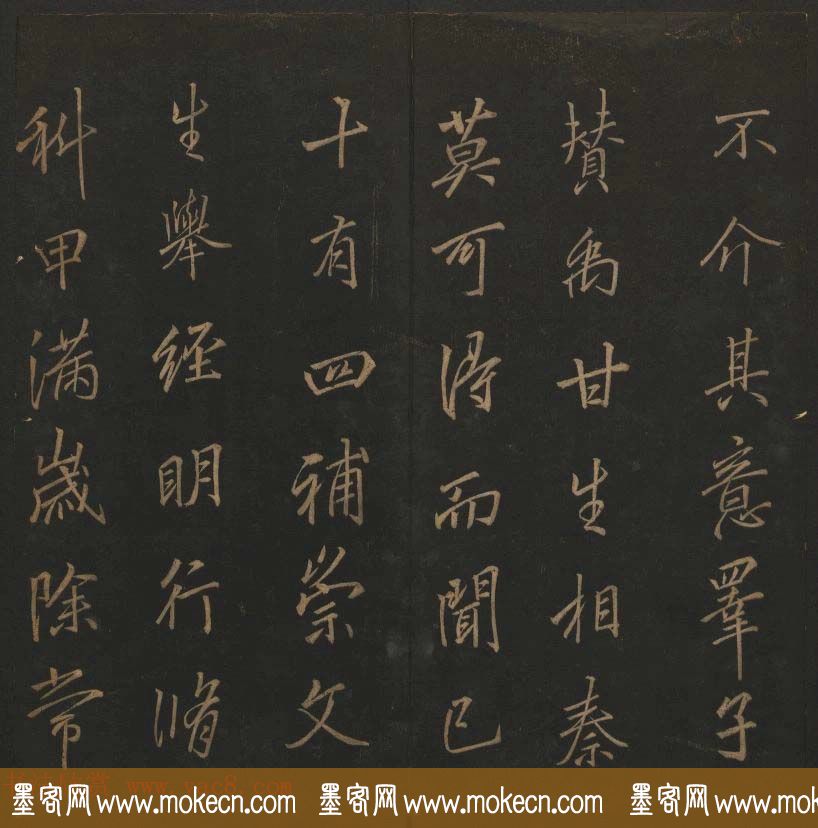 不介其意羣子
賛禹甘生相秦
莫可得而聞已
十有四補崇文
生舉經明行脩
科甲滿歲除常
www.yac8.com
墨客网 www.mokecn.com 墨客网 www.mokecn.com 墨客网 www.mokecn.com